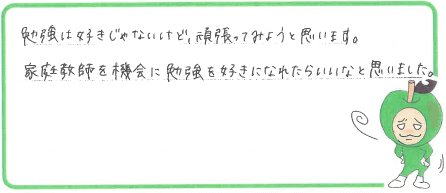 勉強は好きじゃないけど、頑張ってみようと思います。
家庭教師を機会に勉強を好きになれたらいいなと思いました。